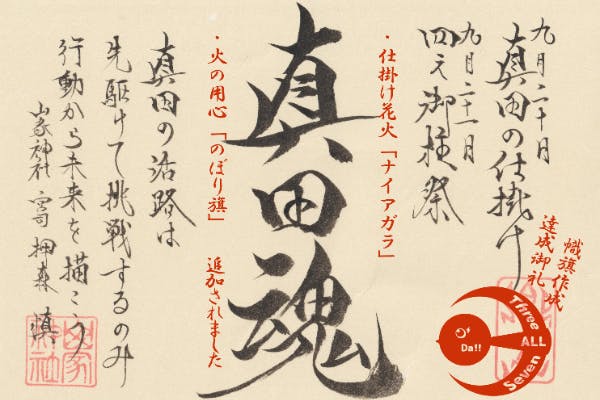 九月二十日
真田の仕掛け
九月二十一日
四之御柱祭
・仕掛け花火「ナイアガラ」
真田魂
・火の用心「のぼり旗」 追加されました
真田の活路は
先駆けて挑戦するのみ
行動から未来を描こう
山家神社 宮司 押森 慎
幟旗作成
達成御礼
Three
ALL
Seven
Da!!
山家神社